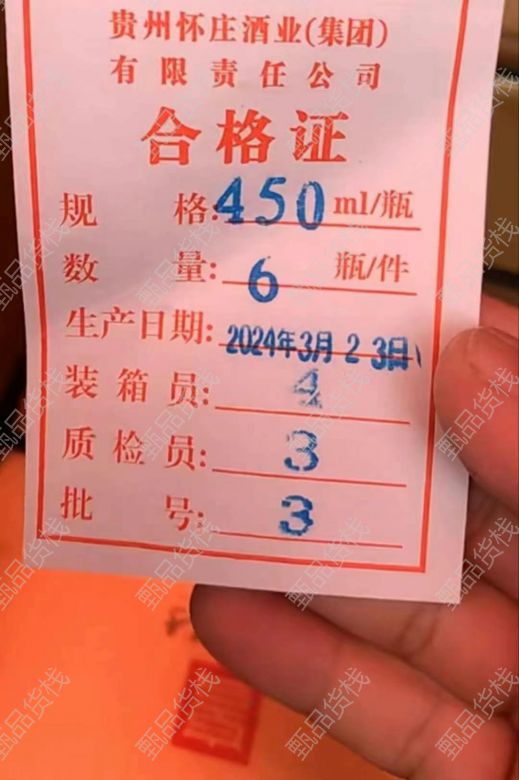 贵州怀庄酒业(集团)
有限责任公司
合格证
规格:450ml/瓶
数量:6瓶/件
生产日期:2024年3月23日
装箱员:4
质检员:3
批号:3
甄品货栈